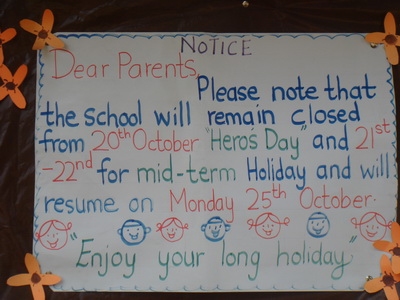 NOTICE
Dear Parents,
Please note that
the school will remain closed
from 20th October "Hero's Day" and 21st
-22nd for mid-term Holiday and will
resume on Monday 25th October.
"Enjoy your long holiday"